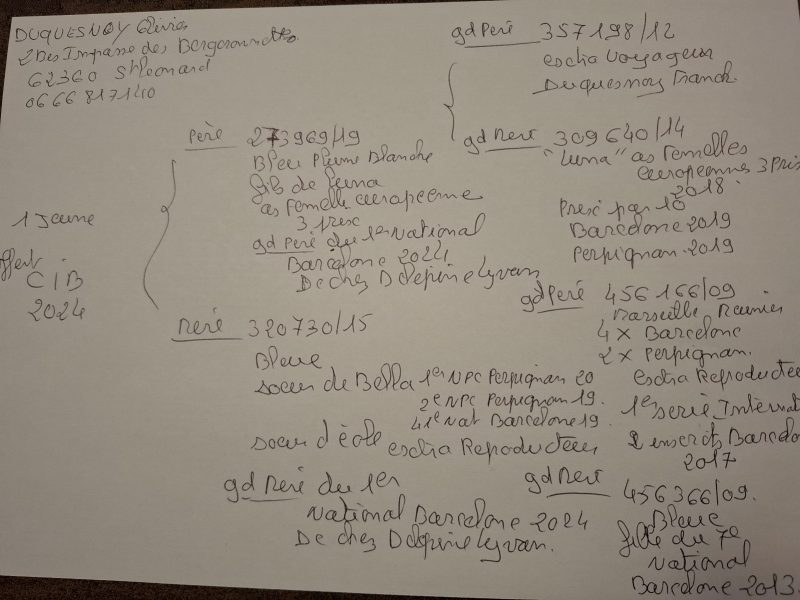 DUQUESNOY Olivier
2Bis Impasse des Bergeronnettes
62360 St Leonard
0666817140
1 Jeune
offert
CIB
2024
Père 273969/19
Bleu Plume Blanche
fils de Luna
as femelle européenne
3 prix
gd Père du 1er National
Barcelone 2024
De chez Delepine Lyvan
Meré 320730/15
Bleue
soeur de Bella 1er NPC Perpignan 20
2e NPC Perpignan 19.
41e Nat Barcelone 19.
soeur d'école extra Reproducteur
gd Meré du 1er
National Barcelone 2024
De chez Delepine Lyvan.
gd Peré 357198/12
extra Voyageur
Duquesnoy Franck
gd Meré 309640/14
"Luna" as Femelles
européennes 3 Prix
2018.
Prix par 10
Barcelone 2019
Perpignan 2019
gd Peré 456166/09
Marseille Reunies
4 x Barcelone
2 x Perpignan.
extra Reproducteu
1er serie Internat
2 inscrits Barcelo
2017
gd Meré
456366/09.
Bleue
fille du 7e
National
Barcelone 2013